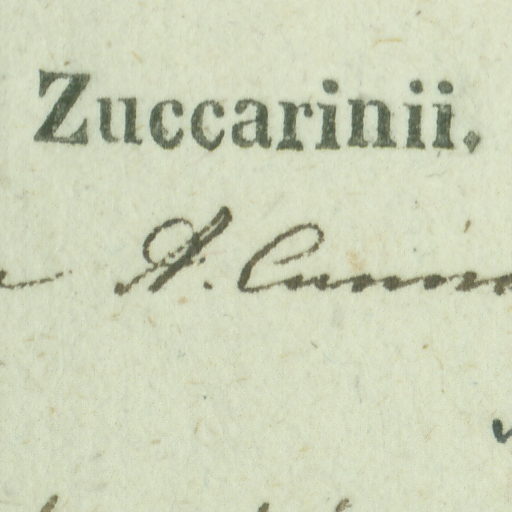 Zuccarinii.
A. Cunn